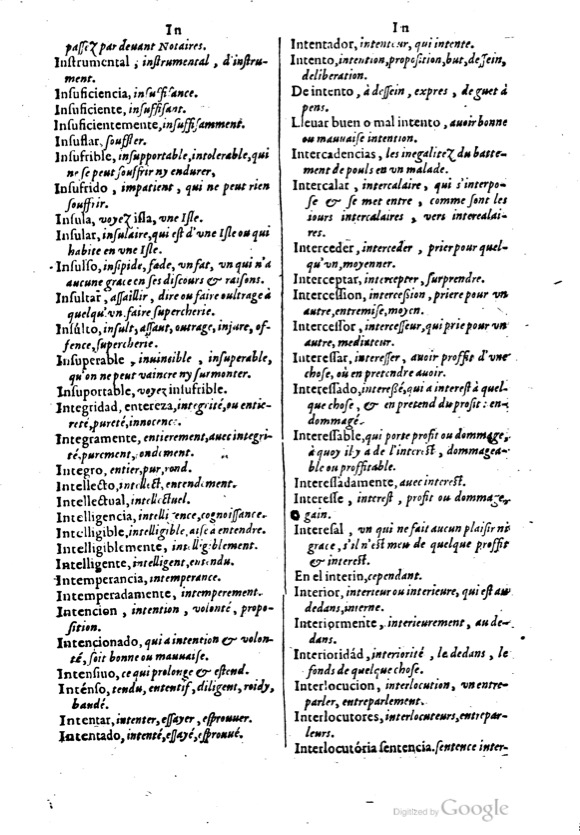 In
passez par deuant Notaires.
Instrumental, instrumental, d'instru-
ment.
Insuficiencia, insuffisance.
Insuficiente, insuffisant.
Insuficientemente, insuffisamment.
Insuflar, souffler.
Insufrible, insupportable, intolerable, qui
ne se peut souffrir ny endurer,
Insufrido, impatient, qui ne peut rien
souffrir.
Insula, voyez isla, vne Isle.
Insular, insulaire, qui est d'vne Isle ou qui
habite en vne Isle.
Insulso, insipide, fade, vn fat, vn qui n'a
aucune grace en ses discours & raisons.
Insultar, assaillir, dire ou faire oultrage à
quelqu'vn, faire supercherie.
Insúlto, insult, assaut, outrage, injure, of-
fence, supercherie.
Insuperable, inuincible, insuperable,
qu'on ne peut vaincre ny surmonter.
Insuportable, voyez insufrible.
Integridad, entereza, integrité, ou entie-
reté, pureté, innocence.
Integramente, entierement, auec integri-
té, purement, rondement.
Integro, entier, pur, rond.
Intellecto, intellect, entendement.
Intellectual, intellectuel.
Intelligencia, intelligence, cognoissance.
Intelligible, intelligible, aisé à entendre.
Intelligiblemente, intelligiblement.
Intelligente, intelligent, entendu.
Intemperancia, intemperance.
Intemperadamente, intemperement.
Intencion, intention, volonté, propo-
sition.
Intencionado, qui a intention & volon-
té, soit bonne ou mauuaise.
Intensiuo, ce qui prolonge & estend.
Inténso, tendu, ententif, diligent, roidy,
baudé.
Intentar, intenter, essayer, esprouuer.
Intentado, intenté, essayé, esprouué.
In
Intentador, intenteur, qui intente.
Intento, intention, proposition, but, dessein,
deliberation.
De intento, à dessein, expres, de guet à
pens.
Lleuar buen o mal intento, auoir bonne
ou mauuaise intention.
Intercadencias, les inegalitez du batte-
ment de pouls en vn malade.
Intercalar, intercalaire, qui s'interpo-
se & se met entre, comme sont les
iours intercalaires, vers interealai-
res.
Interceder, interceder, prier pour quel-
qu'vn, moyenner.
Interceptar, intercepter, surprendre.
Intercession, intercession, priere pour vn
autre, entremise, moyen.
Intercessor, intercesseur, qui prie pour vn
autre, mediateur.
Interessar, interesser, auoir proffit d'vne
chose, où en pretendre auoir.
Interessado, interessé, qui a interest à quel-
que chose, & en pretend du profit: en-
dommagé.
Interessable, qui porte profit ou dommage,
à quoy il y a de l'interest, dommagea-
ble ou proffitable.
Interessadamente, auec interest.
Interesse, interest, profit ou dommage,
gain.
Interesal, vn qui ne fait aucun plaisir ni
grace, s'il n'est meu de quelque proffit
& interest.
En el interin, cependant.
Interior, interieur ou interieure, qui est au
dedans, interne.
Interiormente, interieurement, au de-
dans.
Interioridád, interiorité, le dedans, le
fonds de quelque chose.
Interlocucion, interlocution, vn entre-
parler, entreparlement.
Interlocutores, interlocuteurs, entrepar-
leurs.
Interlocutória sentencia. sentence inter-
Digitized by Google